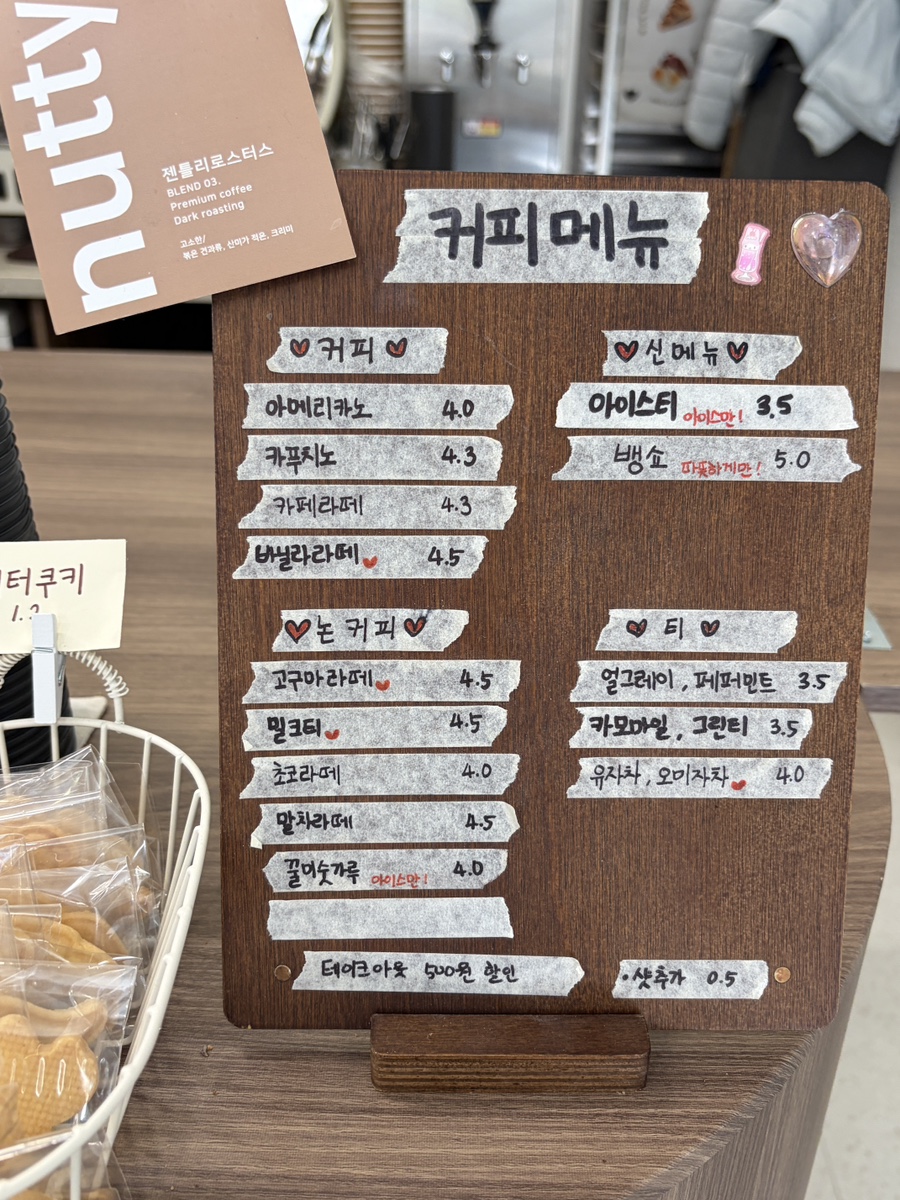 nutty
젠틀리로스터스
BLEND 03.
Premium coffee
Dark roasting
고소한/
볶은 견과류, 산미가 적은, 크리미
커피메뉴
커피
아메리카노 4.0
카푸치노 4.3
카페라떼 4.3
바닐라라떼 4.5
신메뉴
아이스티 아이스만! 3.5
뱅쇼 따뜻하게만! 5.0
논커피
고구마라떼 4.5
밀크티 4.5
초코라떼 4.0
말차라떼 4.5
꿀미숫가루 아이스만! 4.0
티
얼그레이, 페퍼민트 3.5
카모마일, 그린티 3.5
유자차, 오미자차 4.0
테이크아웃 500원 할인
•샷추가 0.5
터쿠키